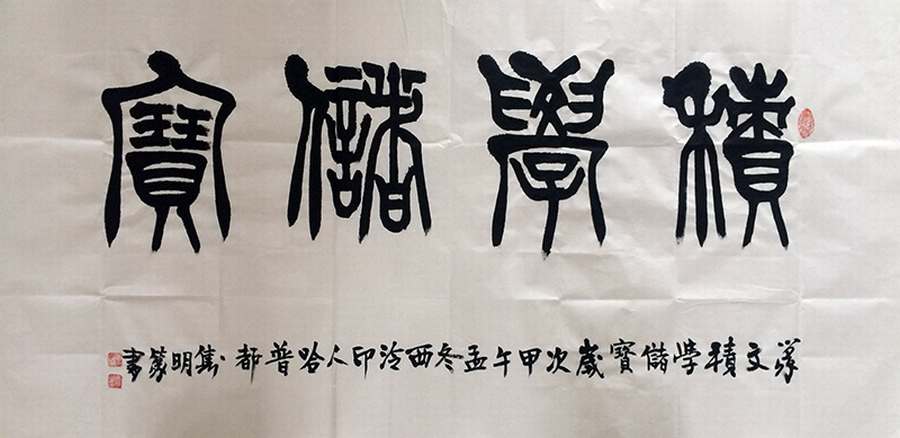 積學儲寶
篆文積學儲寶歲次甲午孟冬西泠印人哈普都隽明篆書